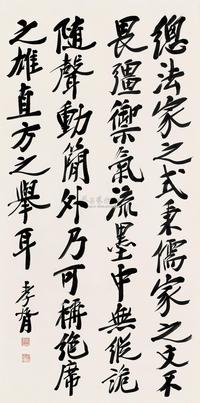 總法家之式秉儒家之文不
畏彊禦氣流墨中無縱詭
随聲動簡外乃可稱絶席
之雄直方之舉耳
孝胥